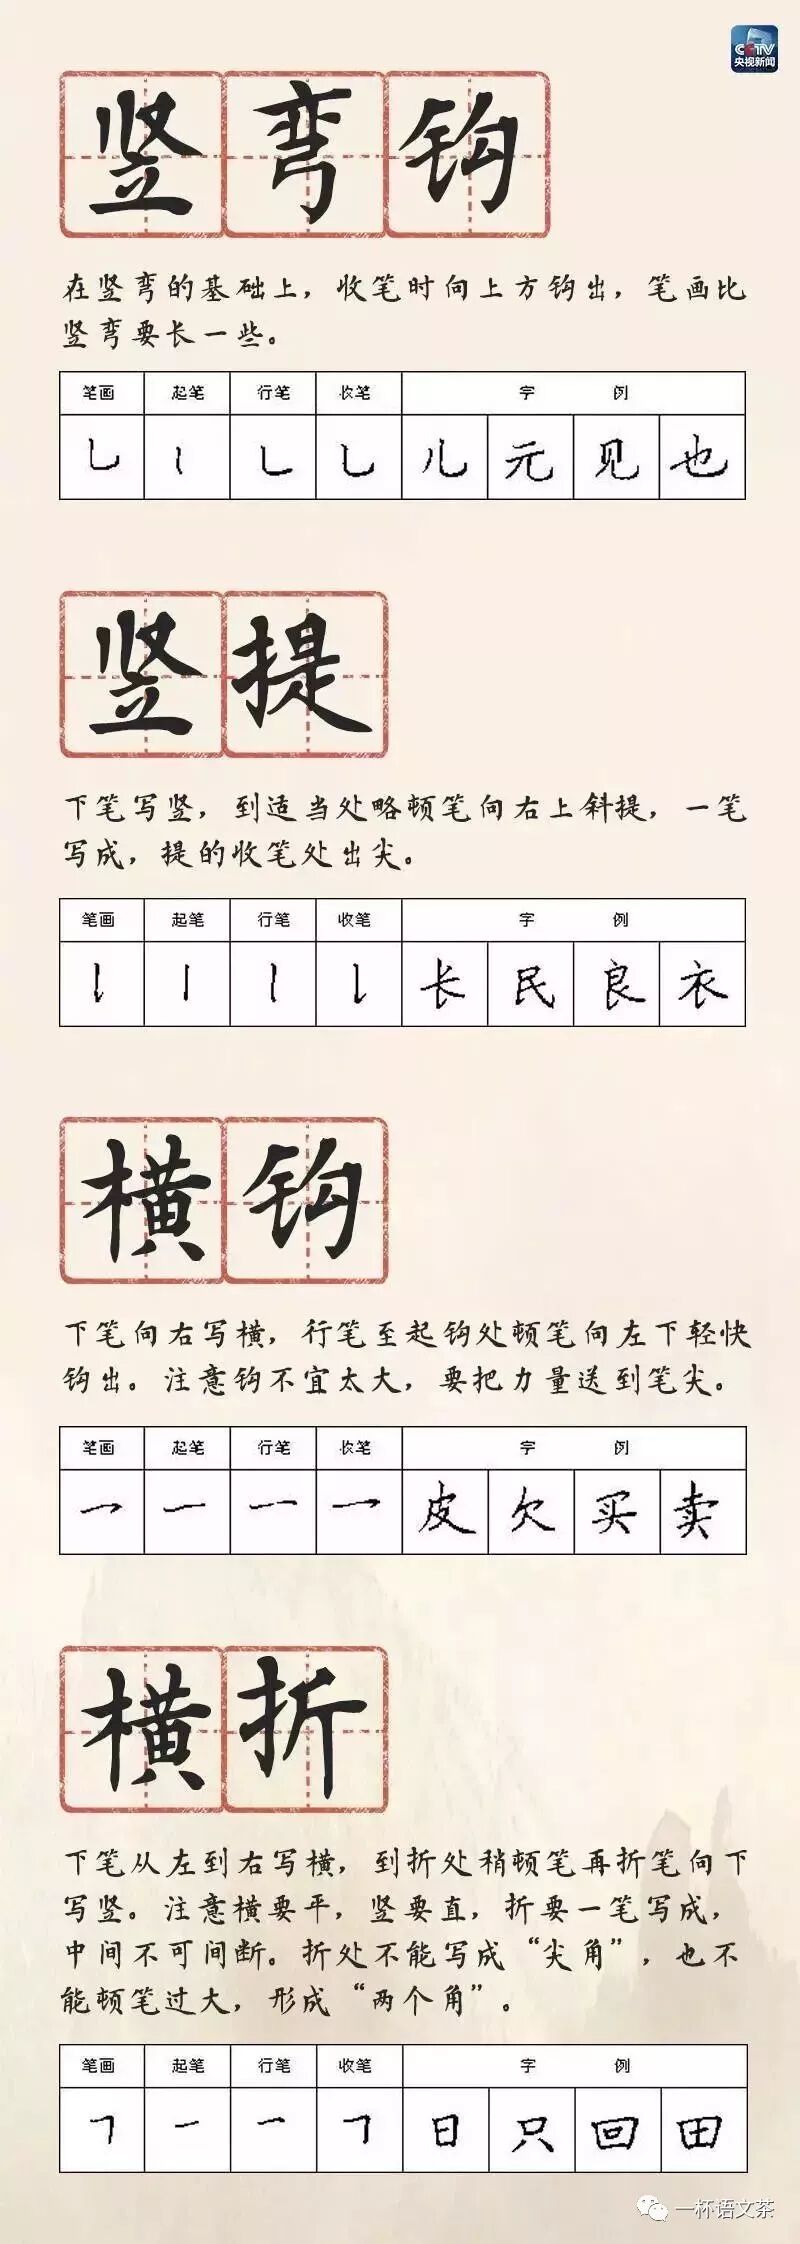 CCTV
央视新闻
竖弯钩
在竖弯的基础上，收笔时向上方钩出，笔画比
竖弯要长一些。
笔画 起笔 行笔 收笔 字 例
乚 丨 乚 乚 儿 元 见 也
竖提
下笔写竖，到适当处略顿笔向右上斜提，一笔
写成，提的收笔处出尖。
笔画 起笔 行笔 收笔 字 例
长 民 良 衣
横钩
下笔向右写横，行笔至起钩处顿笔向左下轻快
钩出。注意钩不宜太大，要把力量送到笔尖。
笔画 起笔 行笔 收笔 字 例
乛 一 一 乛 皮 欠 买 卖
横折
下笔从左到右写横，到折处稍顿笔再折笔向下
写竖。注意横要平，竖要直，折要一笔写成，
中间不可间断。折处不能写成“尖角”，也不
能顿笔过大，形成“两个角”。
笔画 起笔 行笔 收笔 字 例
𠃍 一 一 𠃍 日 只 回 田
一杯语文茶